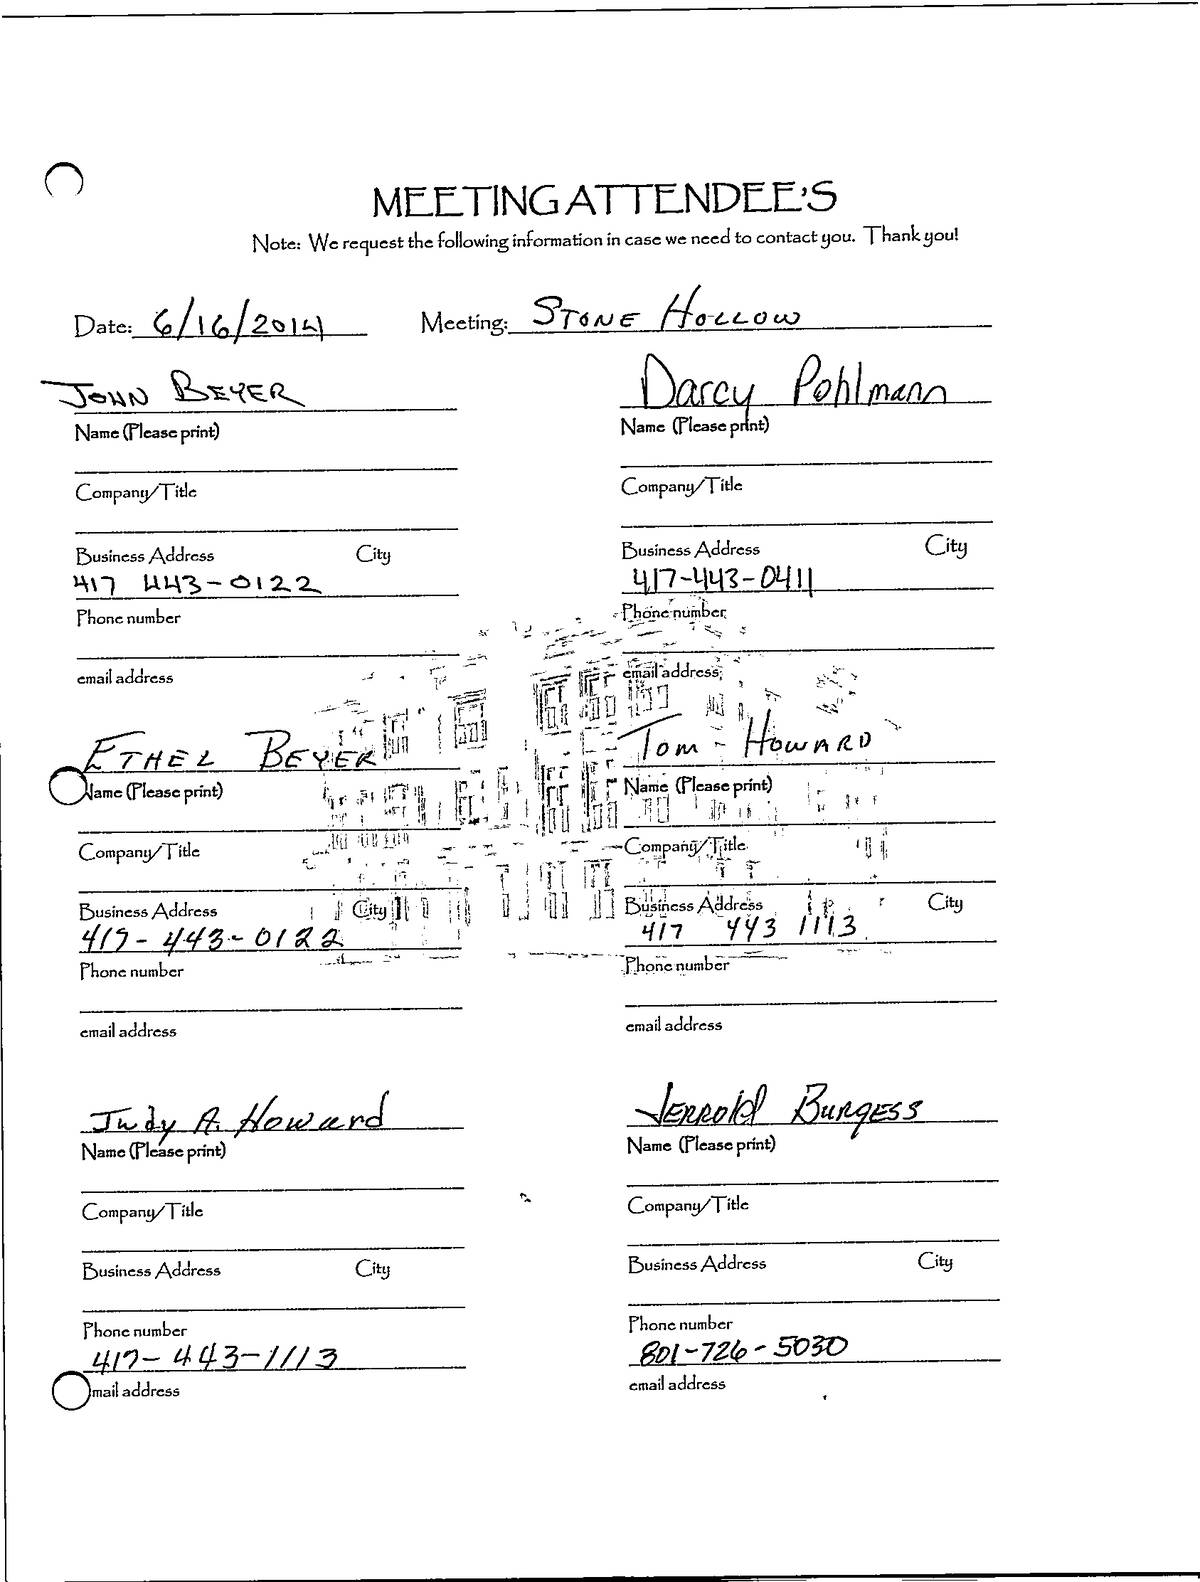 MEETING ATTENDEE'S
Note: We request the following information in case we need to contact you. Thank you!
Date: 6/16/2014 Meeting: STONE HOLLOW
JOHN BEYER
Name (Please print)
Company/Title
Business Address City
417 443-0122
Phone number
email address
Darcy Pohlmann
Name (Please print)
Company/Title
Business Address City
417-443-0411
Phone number
email address
ETHEL BEYER
Name (Please print)
Company/Title
Business Address City
417-443-0122
Phone number
email address
Tom - HOWARD
Name (Please print)
Company/Title
Business Address City
417 443 1113
Phone number
email address
Judy A. Howard
Name (Please print)
Company/Title
Business Address City
Phone number
417-443-1113
mail address
JERROLd BURGESS
Name (Please print)
Company/Title
Business Address City
Phone number
801-726-5030
email address